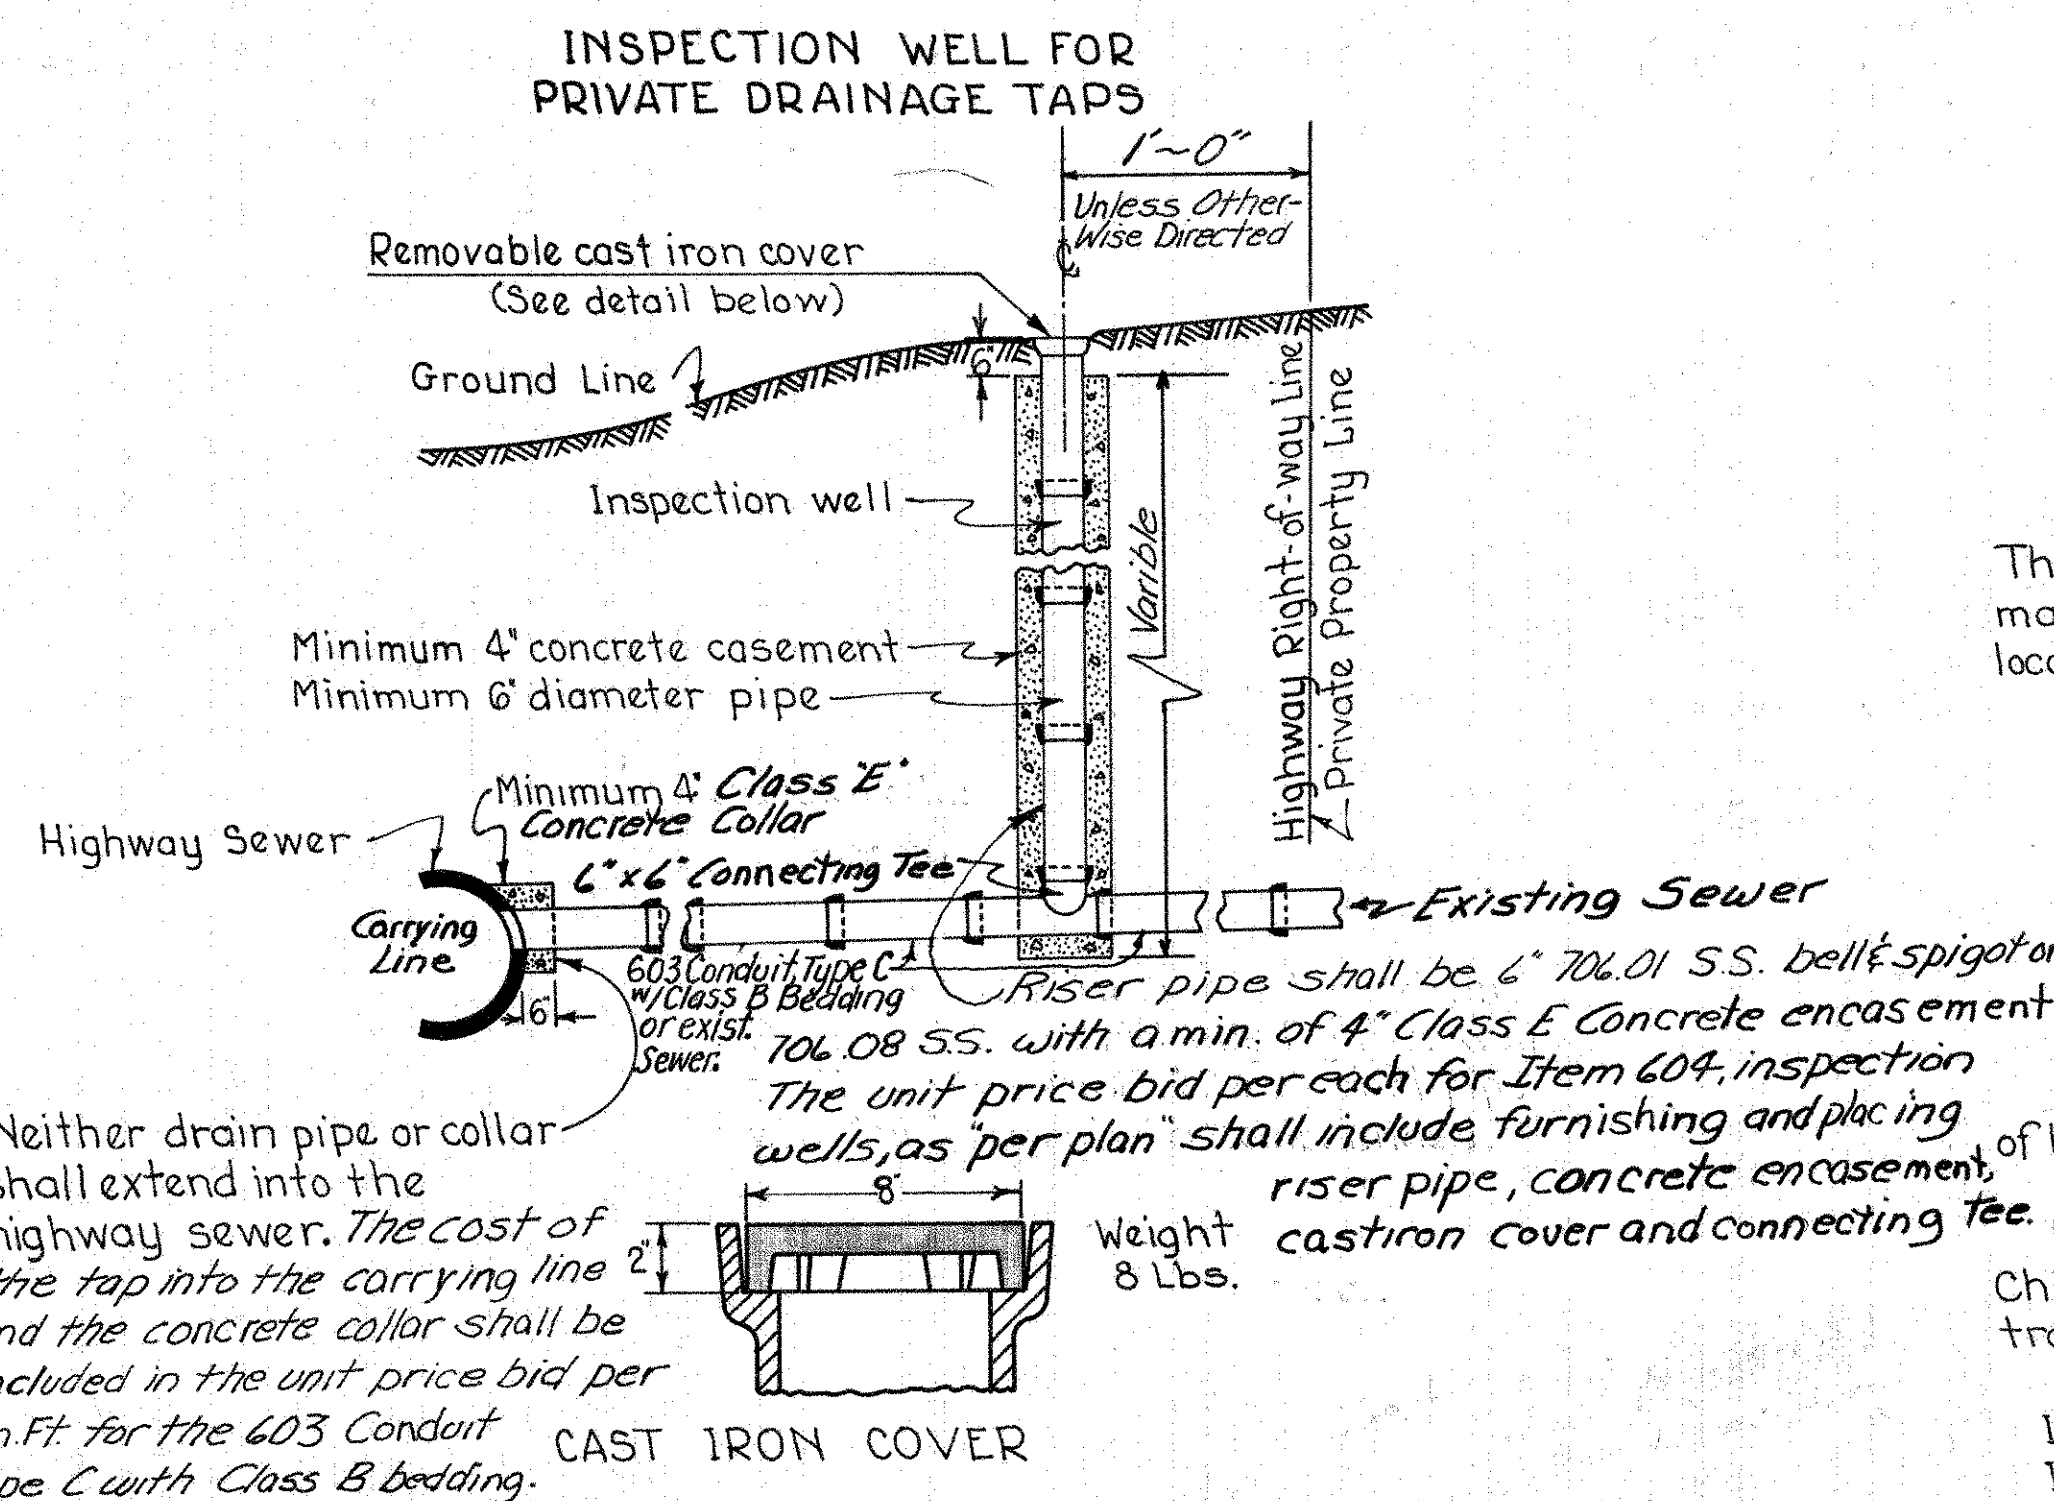 INSPECTION WELL FOR
PRIVATE DRAINAGE TAPS
1'~0"
Unless Other-
Wise Directed
℄
Removable cast iron cover
(See detail below)
6"
Ground Line
Inspection well
Varible
Highway Right-of-way Line
Private Property Line
Minimum 4" concrete casement
Minimum 6" diameter pipe
Minimum 4" Class "E"
Concrete Collar
Highway Sewer
6" x 6" Connecting Tee
Carrying
Line
Existing Sewer
603 Conduit, Type C
w/Class B Bedding
or exist.
Sewer.
6"
Riser pipe shall be 6" 706.01 S.S. bell & spigot or
706.08 S.S. with a min. of 4" Class E Concrete encasement
The unit price bid per each for Item 604, inspection
wells, as "per plan" shall include furnishing and placing
riser pipe, concrete encasement,
cast iron cover and connecting Tee.
Neither drain pipe or collar
shall extend into the
highway sewer. The cost of
the tap into the carrying line
nd the concrete collar shall be
ncluded in the unit price bid per
n.Ft. for the 603 Conduit
pe C with Class B bedding.
8"
2"
Weight
8 Lbs.
CAST IRON COVER
Th
ma
loca
of
Ch
tra